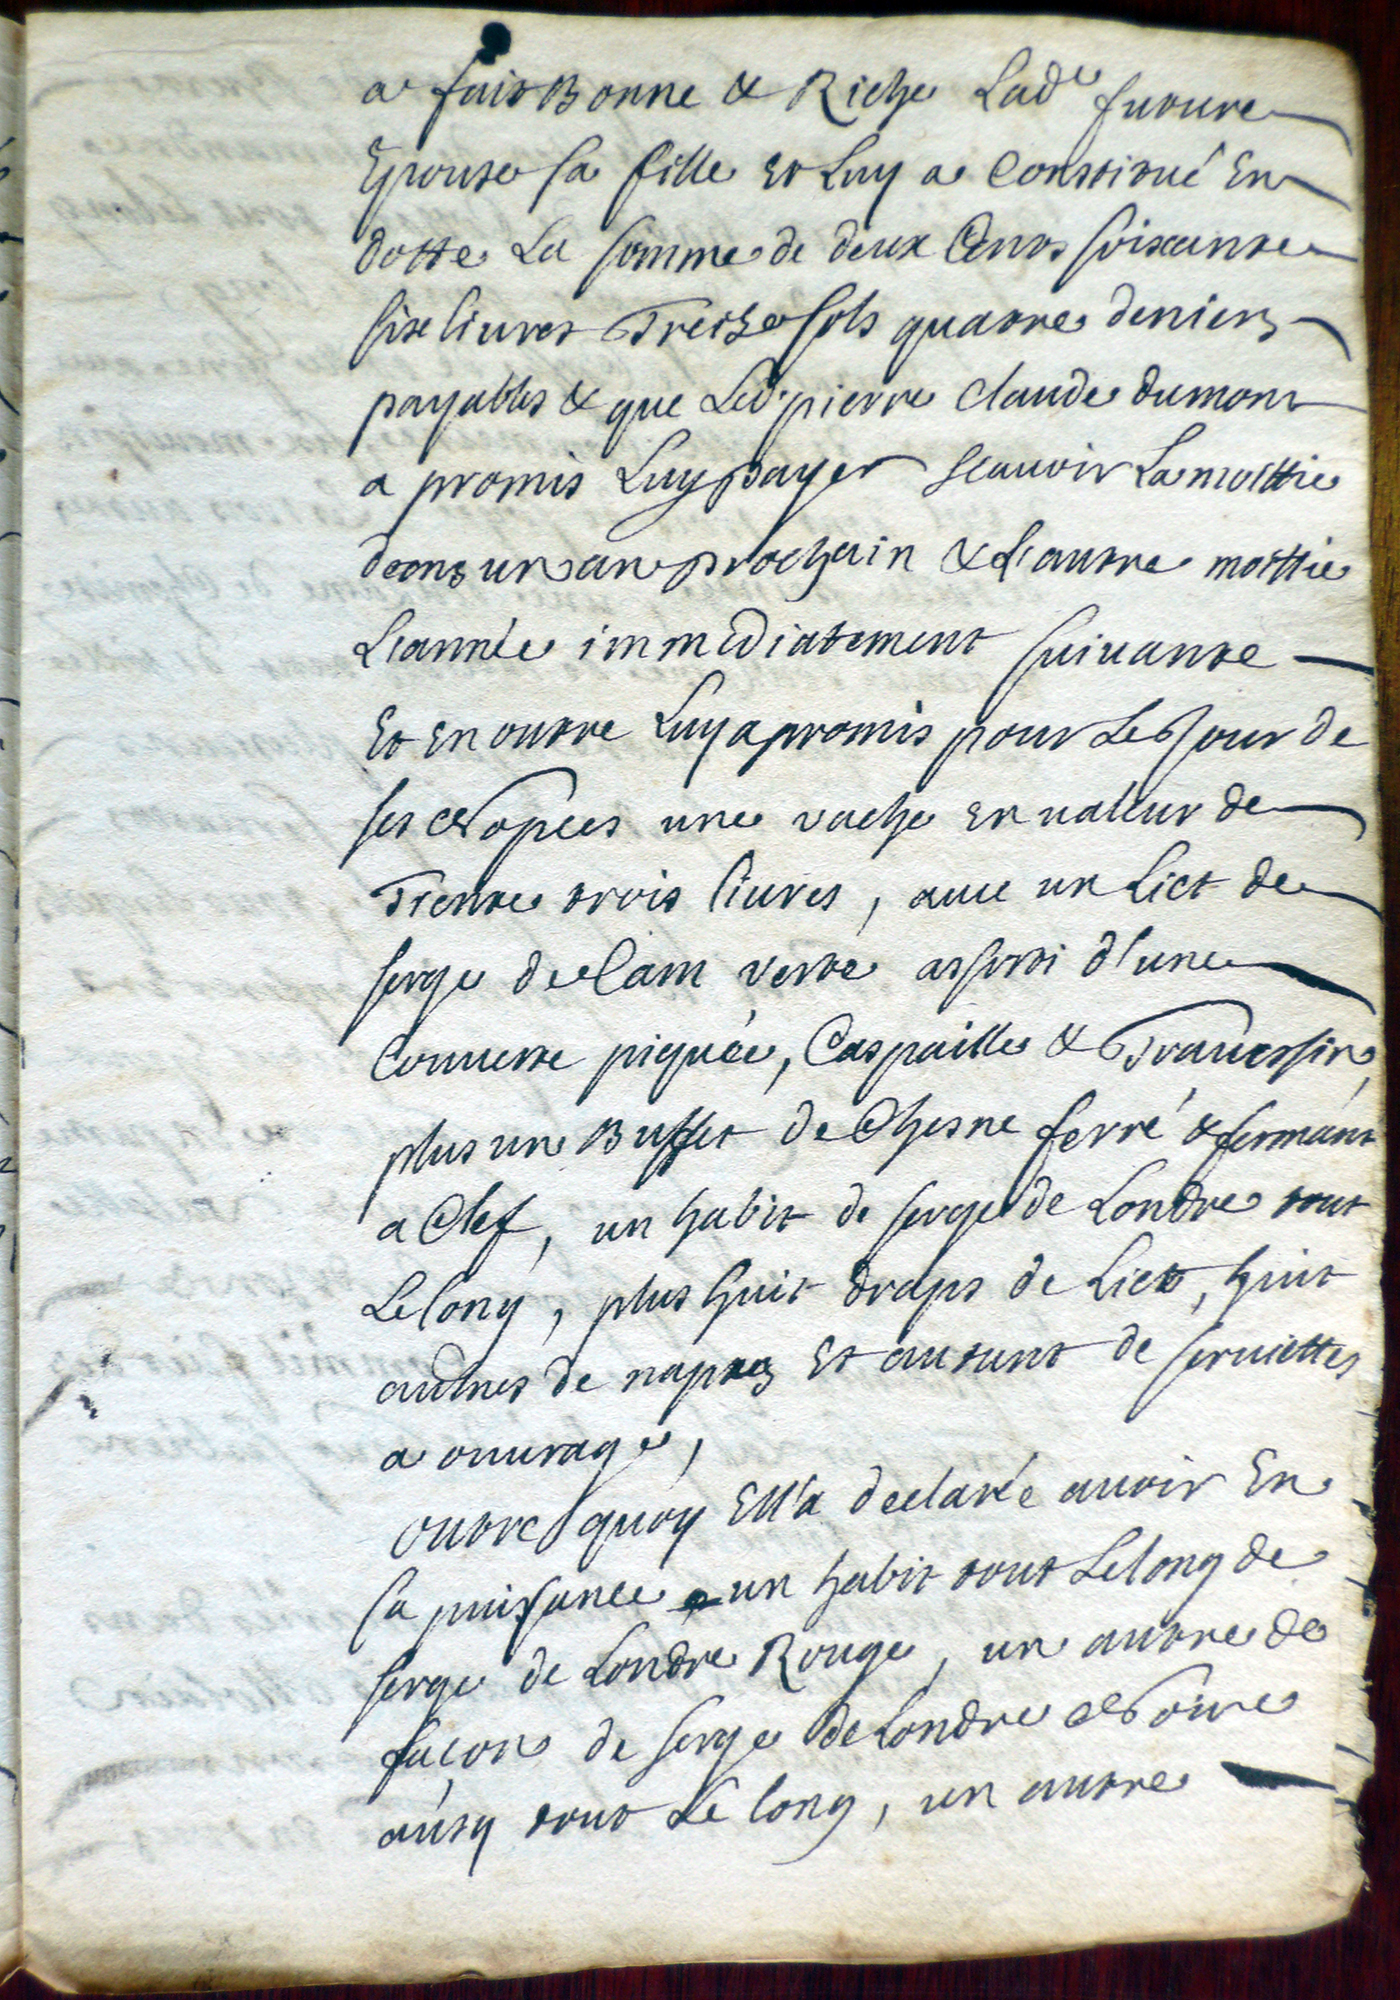 a fait Bonne & Riche Lad.e future
Epouse sa fille et Luy a Constitué En
dotte La somme de deux Cents soixante
six liures Treize sols quatre deniers
payables & que Led. pierre Claude dumont
a promis Luy payer scauoir La moittie
dans un an prochain & L'autre moittie
L'année immediatement suiuante
Et En outre Luy a promis pour Le Jour de
ses Nopces une vache en valleur de
Trente trois liures, auec un Lict de
serge de Cam verte assorti d'une
Couuerte piquée, Caspaille & Trauersin,
plus un Buffet de Chesne ferré & fermant
a Clef, un habit de serge de Londre tout
Le long, plus huit draps de Lict, huit
autres de nappes Et autant de seruiettes
a ouurage,
outre quoy Ell'a declarée auoir En
sa puissance un habit tout Le long de
serge de Londre Rouge, un autre de
façon de serge de Londre Noire
ausy tout Le long, un autre